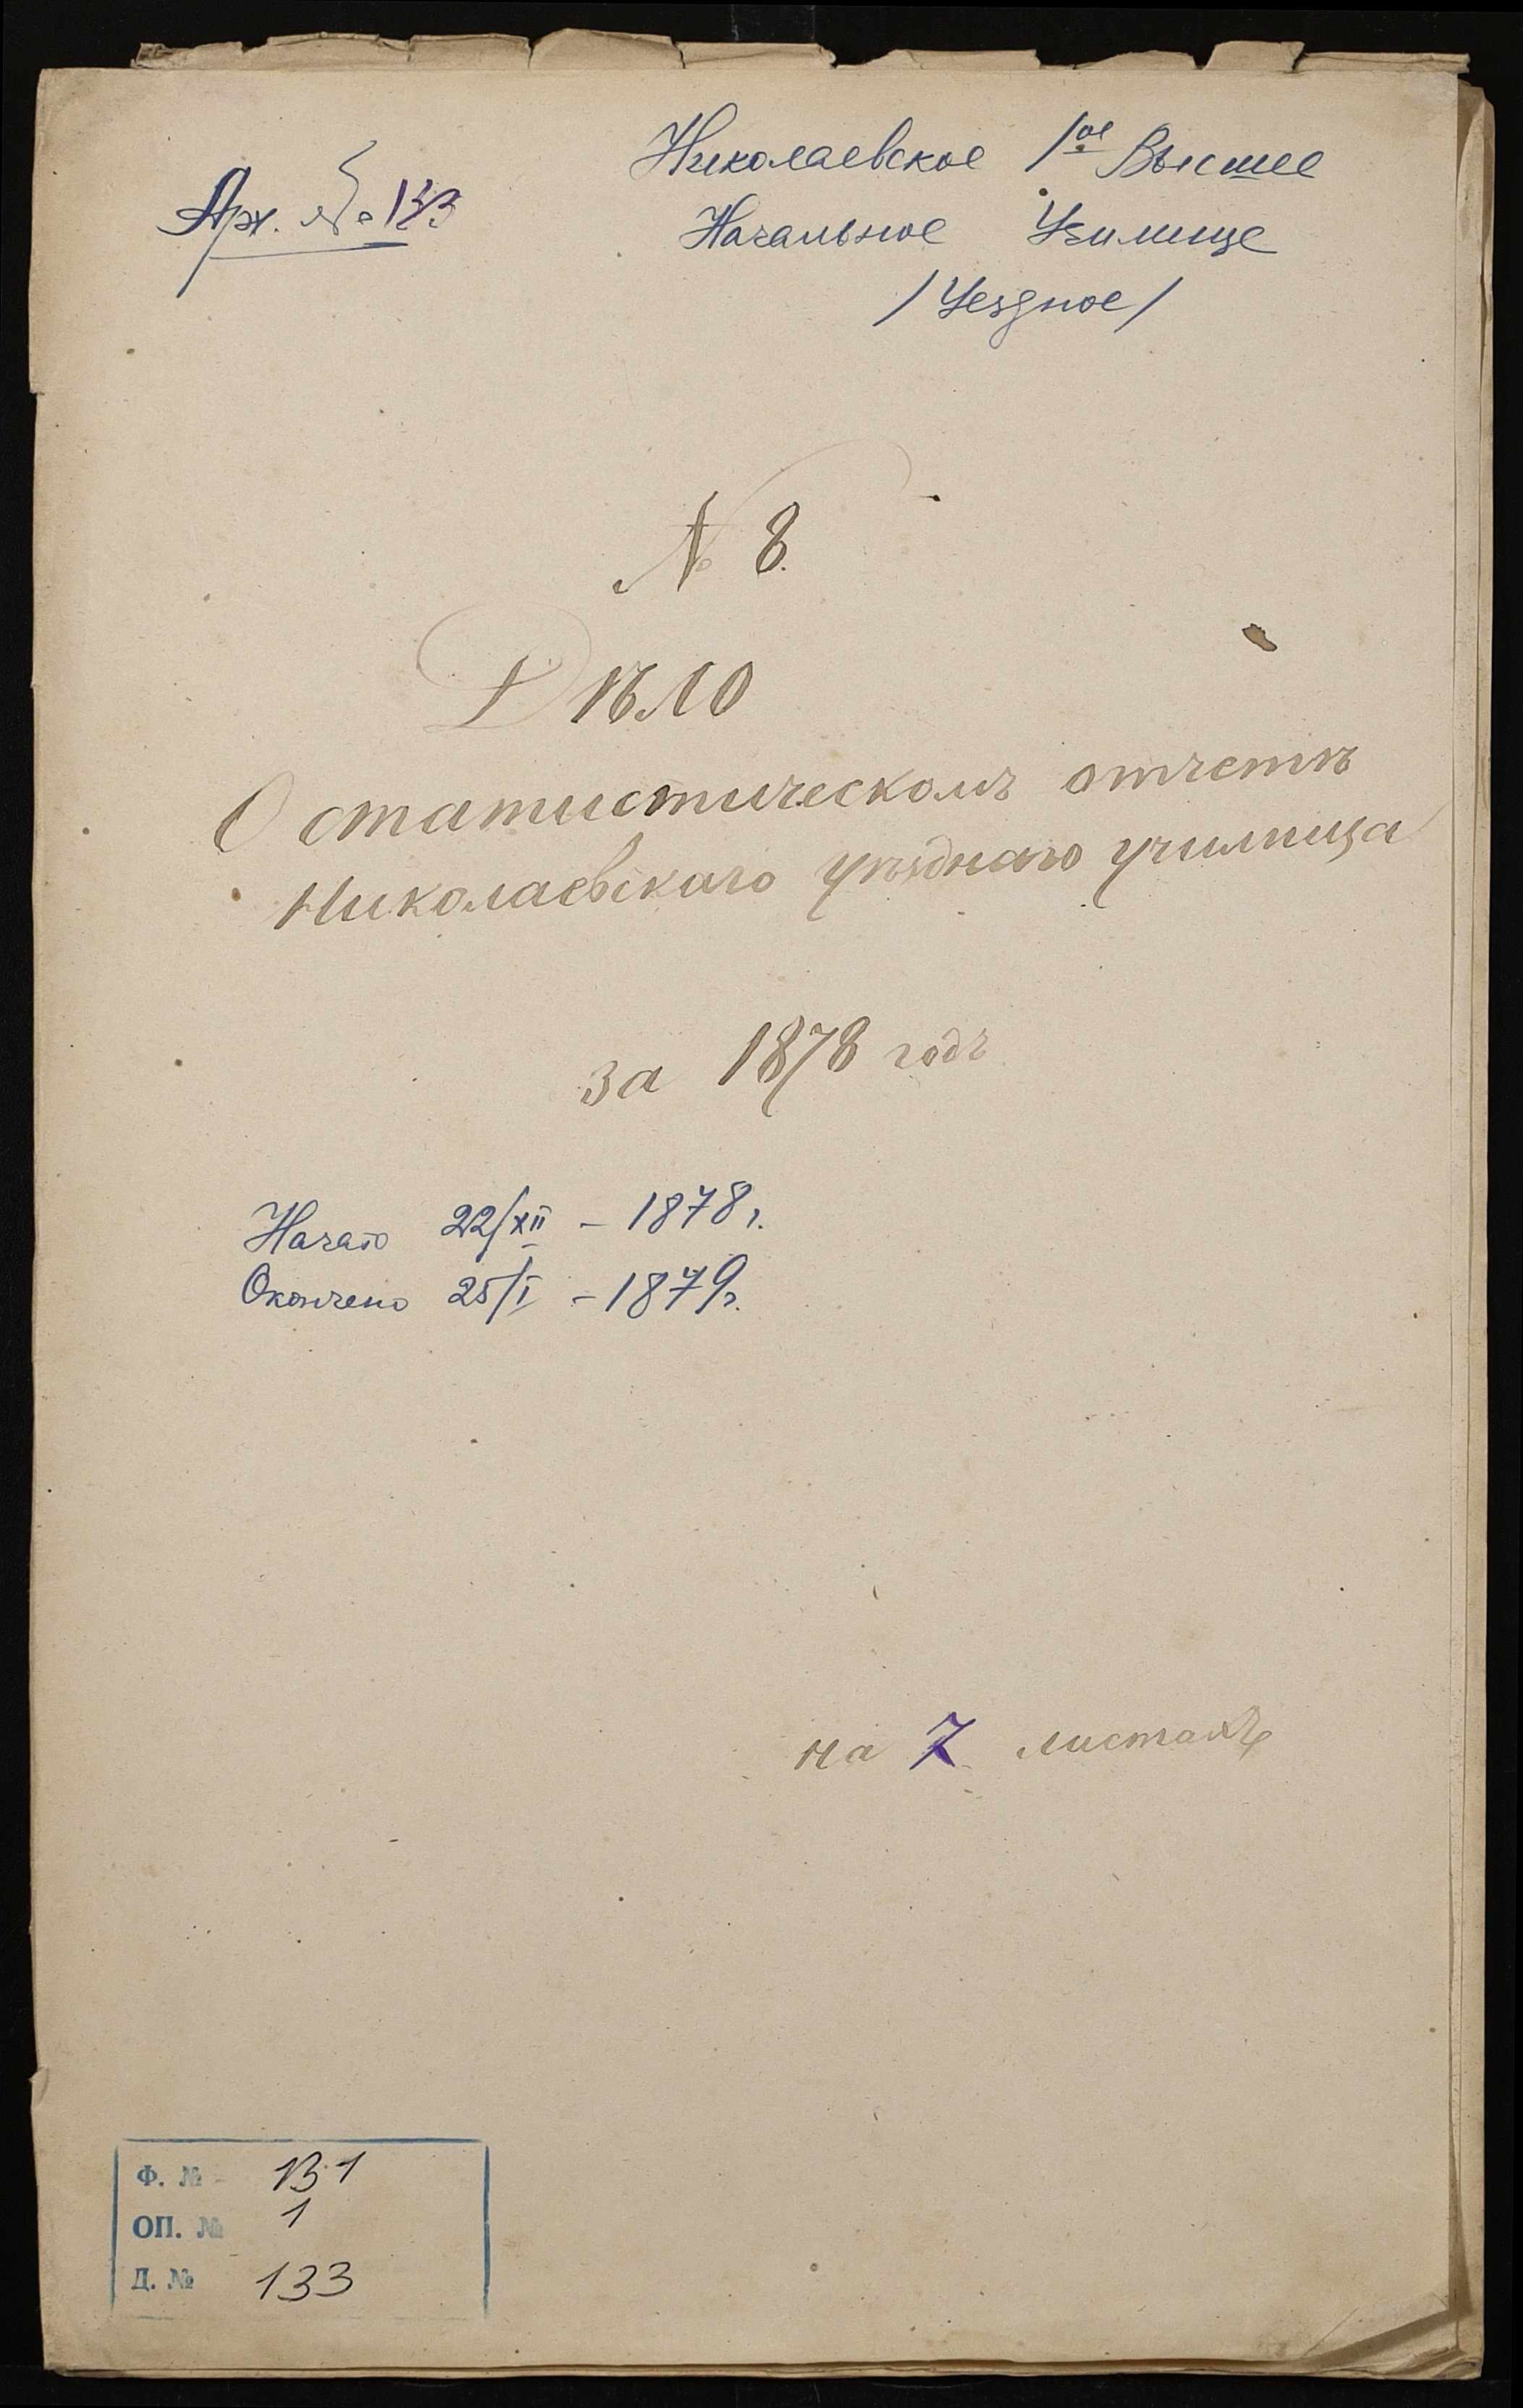 Николаевское 1ое Высшее
Арх. № 133
Начальное Училище
/Уездное/
№ 8.
Дѣло
О статистическомъ отчетѣ
Николаевскаго уѣзднаго училища
за 1878 годъ
Начато 22/XII – 1878 г.
Окончено 25/I – 1879 г.
на 7 листахъ
Ф. № 131
ОП. № 1
Д. № 133